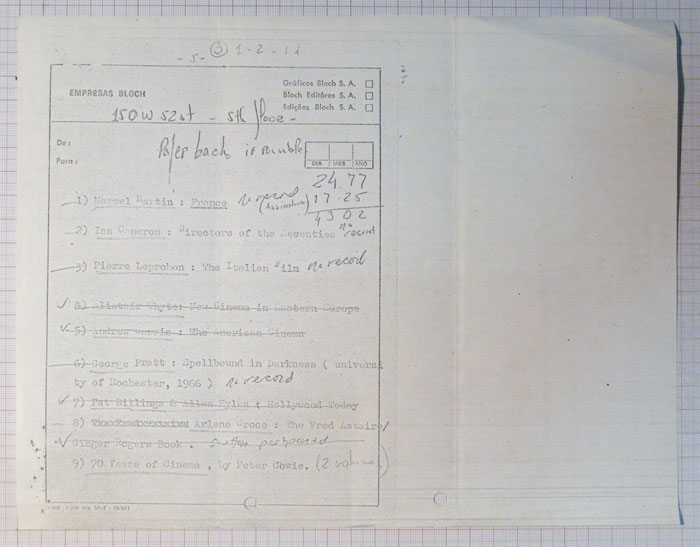 - 5 - ③ 1 - 2 - 11
EMPRESAS BLOCH
Gráficos Bloch S. A.
Bloch Editôres S. A.
Edições Bloch S. A.
150 W 52 st - 5th floor -
De:
Para:
Paper back if possible
DIA MES ANO
24.77
1) Marcel Martin : France no record (Assinatura) 17-25
43 02
2) Ian Cameron : Directors of the Seventies no record
3) Pierre Leprohon : The Italian Film no record
4) Alistair Whyte: New Cinema in Eastern Europe
5) Andrew Sarris : The American Cinema
6) George Pratt : Spellbound in Darkness ( universi
ty of Rochester, 1966 ) no record
7) Pat Billings & Allen Eyles : Hollywood Today
8) Arlene Croce : The Fred Astaire/
Ginger Rogers Book. postponed
9) 70 Years of Cinema , by Peter Cowie. (2 volumes)